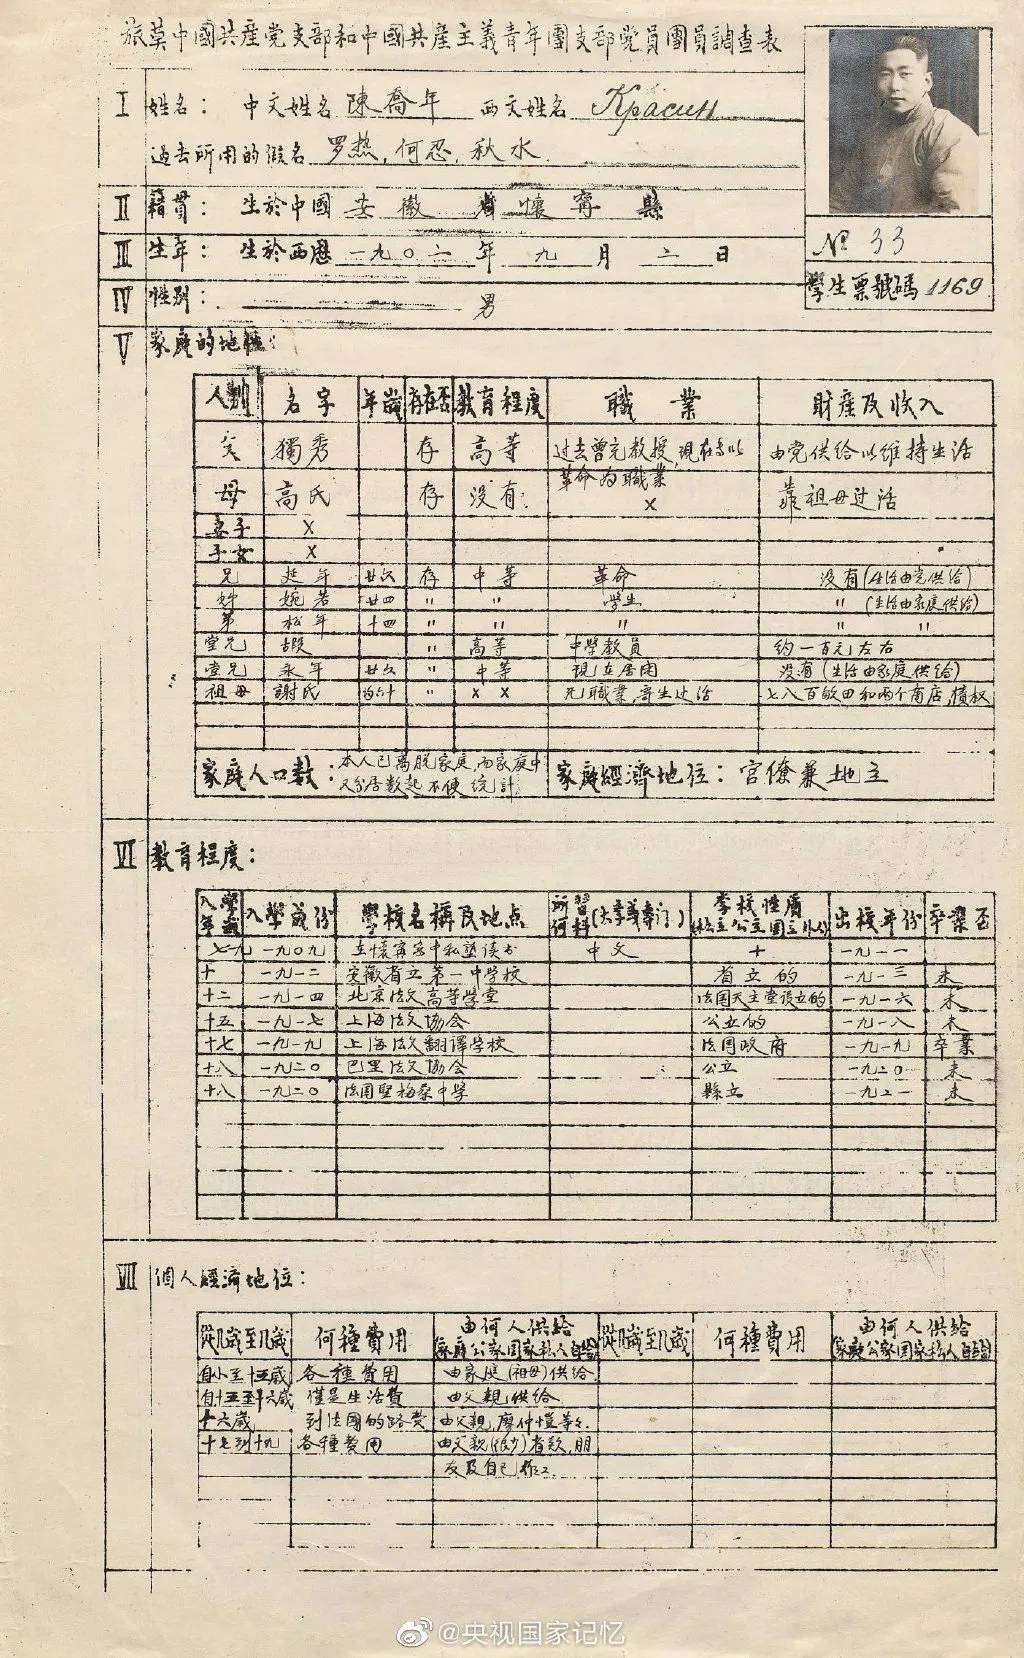 旅莫中國共產党支部和中國共產主義青年團支部党員團員調查表
I 姓名： 中文姓名 陳喬年 西文姓名 Красин
過去所用的假名 罗热，何忍，秋水
II 籍貫： 生於中國 安徽 省 懷寧 縣
III 生年： 生於西歷 一九〇二 年 九 月 二 日
№ 33
IV 性別： 男
學生票號碼 1169
V 家庭的地位：
人別 名字 年歲 存在否 教育程度 職業 財產及收入
父 獨秀 存 高等 过去曾充教授，現在专以革命为職業 由党供给以维持生活
母 高氏 存 没有 × 靠祖母过活
妻子 ×
子女 ×
兄 延年 廿六 存 中等 革命 没有(生活由党供给)
姊 婉若 廿四 〃 〃 學生 〃 (生活由家庭供给)
弟 松年 十四 〃 〃 〃 〃 〃
堂兄 遐 〃 高等 中學教員 约一百元左右
堂兄 永年 廿六 〃 中等 現在居閑 没有(生活由家庭供给)
祖母 謝氏 〃 × × 无職業，寄生过活 七八百畝田和两个商店，債权
家庭人口數： 本人已离脱家庭，而家庭中又分居数起不便统計
家庭經濟地位：官僚兼地主
VI 教育程度：
入學年歲 入學歲份 學校名稱及地点 所習何科(大學或專门) 李校性質(私立公立国立外人) 出校年份 卒業否
七 一九〇九 在懷寧家中私塾读书 中文 + 一九一一
十 一九一二 安徽省立第一中学校 省立的 一九一三 未
十二 一九一四 北京法文高等学堂 法国天主堂设立的 一九一六 未
十五 一九一七 上海法文協会 公立的 一九一八 未
十七 一九一九 上海法文翻譯学校 法国政府 一九一九 卒業
十八 一九二〇 巴里法文協会 公立 一九二〇 未
十八 一九二〇 法国聖梅桑中学 縣立 一九二一 未
VII 個人經濟地位：
從几歲至几歲 何種費用 由何人供给(家庭公家国家私人自給) 從几歲至几歲 何種費用 由何人供给(家庭公家国家私人自給)
自小至十五歲 各種費用 由家庭(祖母)供给
自十五至十六歲 僅是生活費 由父親供给
十六歲 到法國的路費 由父親，廖仲愷等々
十七到十九 各種費用 由父親(很少)者欵，朋友及自己作工
@央视国家记忆